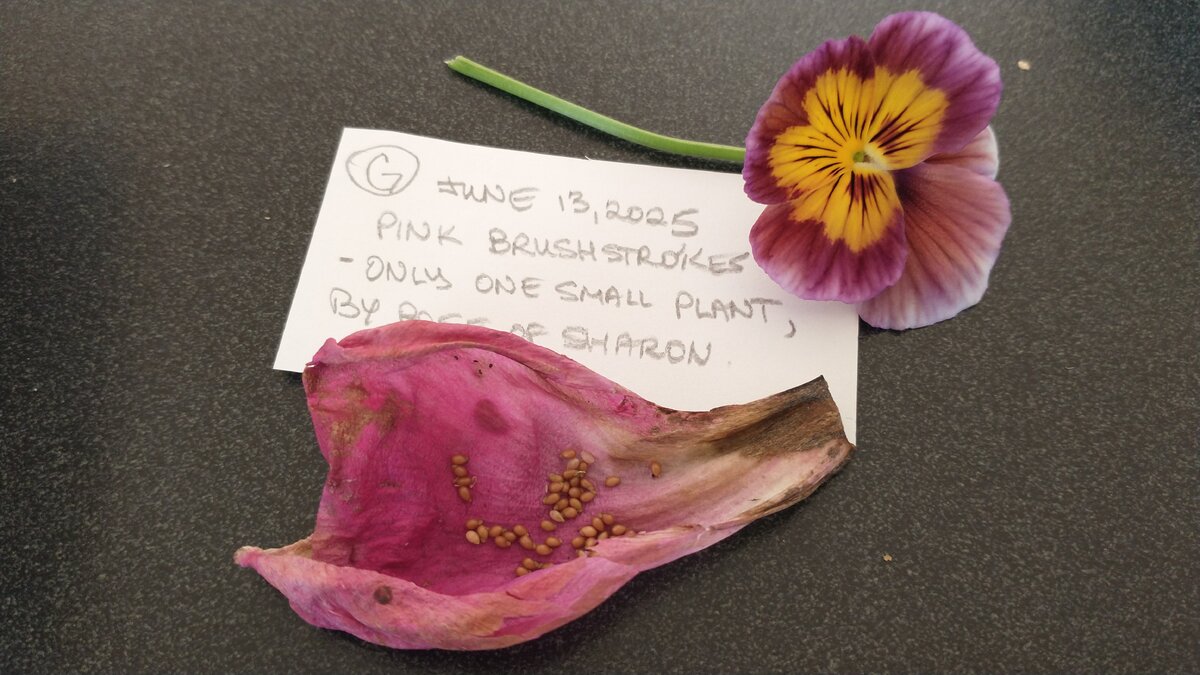 G JUNE 13, 2025
PINK BRUSHSTROKES
- ONLY ONE SMALL PLANT,
BY ROSE OF SHARON